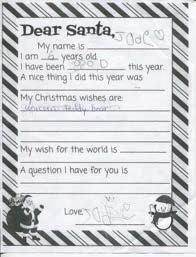 Dear Santa,
My name is
I am 6 years old.
I have been good this year.
A nice thing I did this year was
My Christmas wishes are:
unicorn teddy bear
My wish for the world is
A question I have for you is
Love,